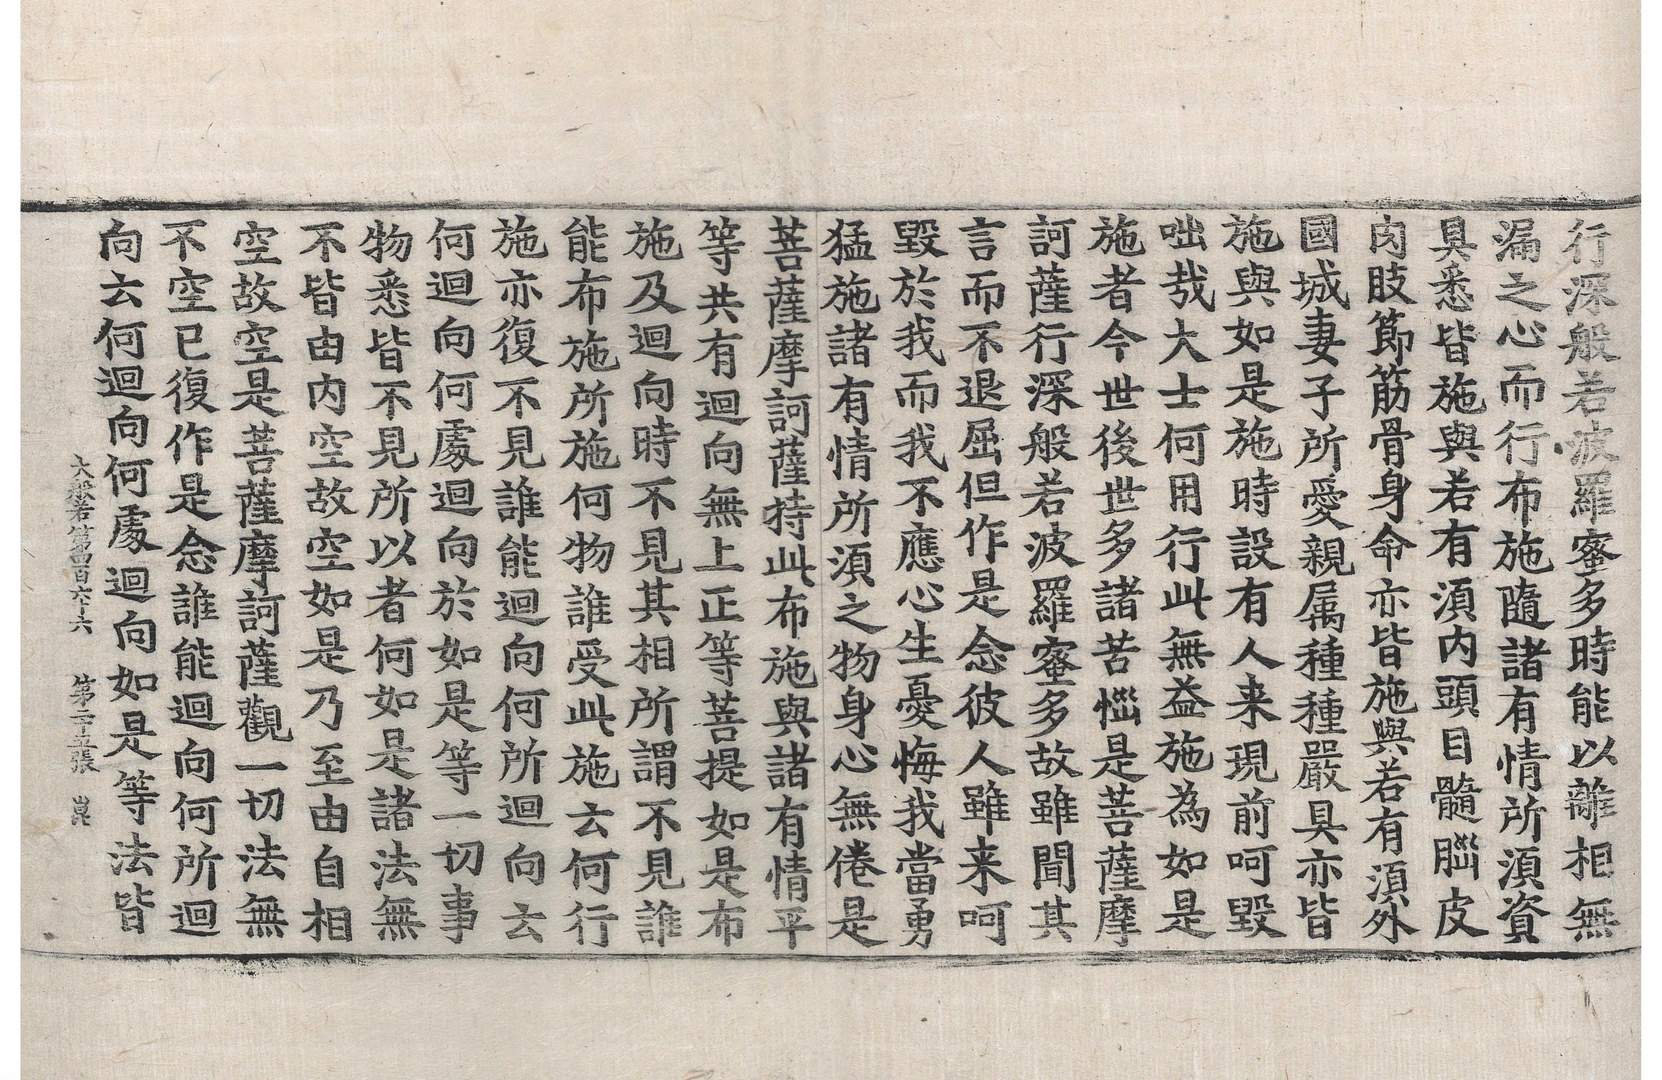 行深般若波羅蜜多時能以離相無
漏之心而行布施隨諸有情所須資
具悉皆施與若有須内頭目髓腦皮
肉肢節筋骨身命亦皆施與若有須外
國城妻子所愛親属種種嚴具亦皆
施與如是施時設有人来現前呵毀
咄哉大士何用行此無益施為如是
施者今世後世多諸苦惱是菩薩摩
訶薩行深般若波羅蜜多故雖聞其
言而不退屈但作是念彼人雖来呵
毀於我而我不應心生憂悔我當勇
猛施諸有情所須之物身心無倦是
菩薩摩訶薩持此布施與諸有情平
等共有迴向無上正等菩提如是布
施及迴向時不見其相所謂不見誰
能布施所施何物誰受此施云何行
施亦復不見誰能迴向何所迴向云
何迴向何處迴向於如是等一切事
物悉皆不見所以者何如是諸法無
不皆由内空故空如是乃至由自相
空故空是菩薩摩訶薩觀一切法無
不空已復作是念誰能迴向何所迴
向云何迴向何處迴向如是等法皆
大般若第四百六十六 第二十五張 崑